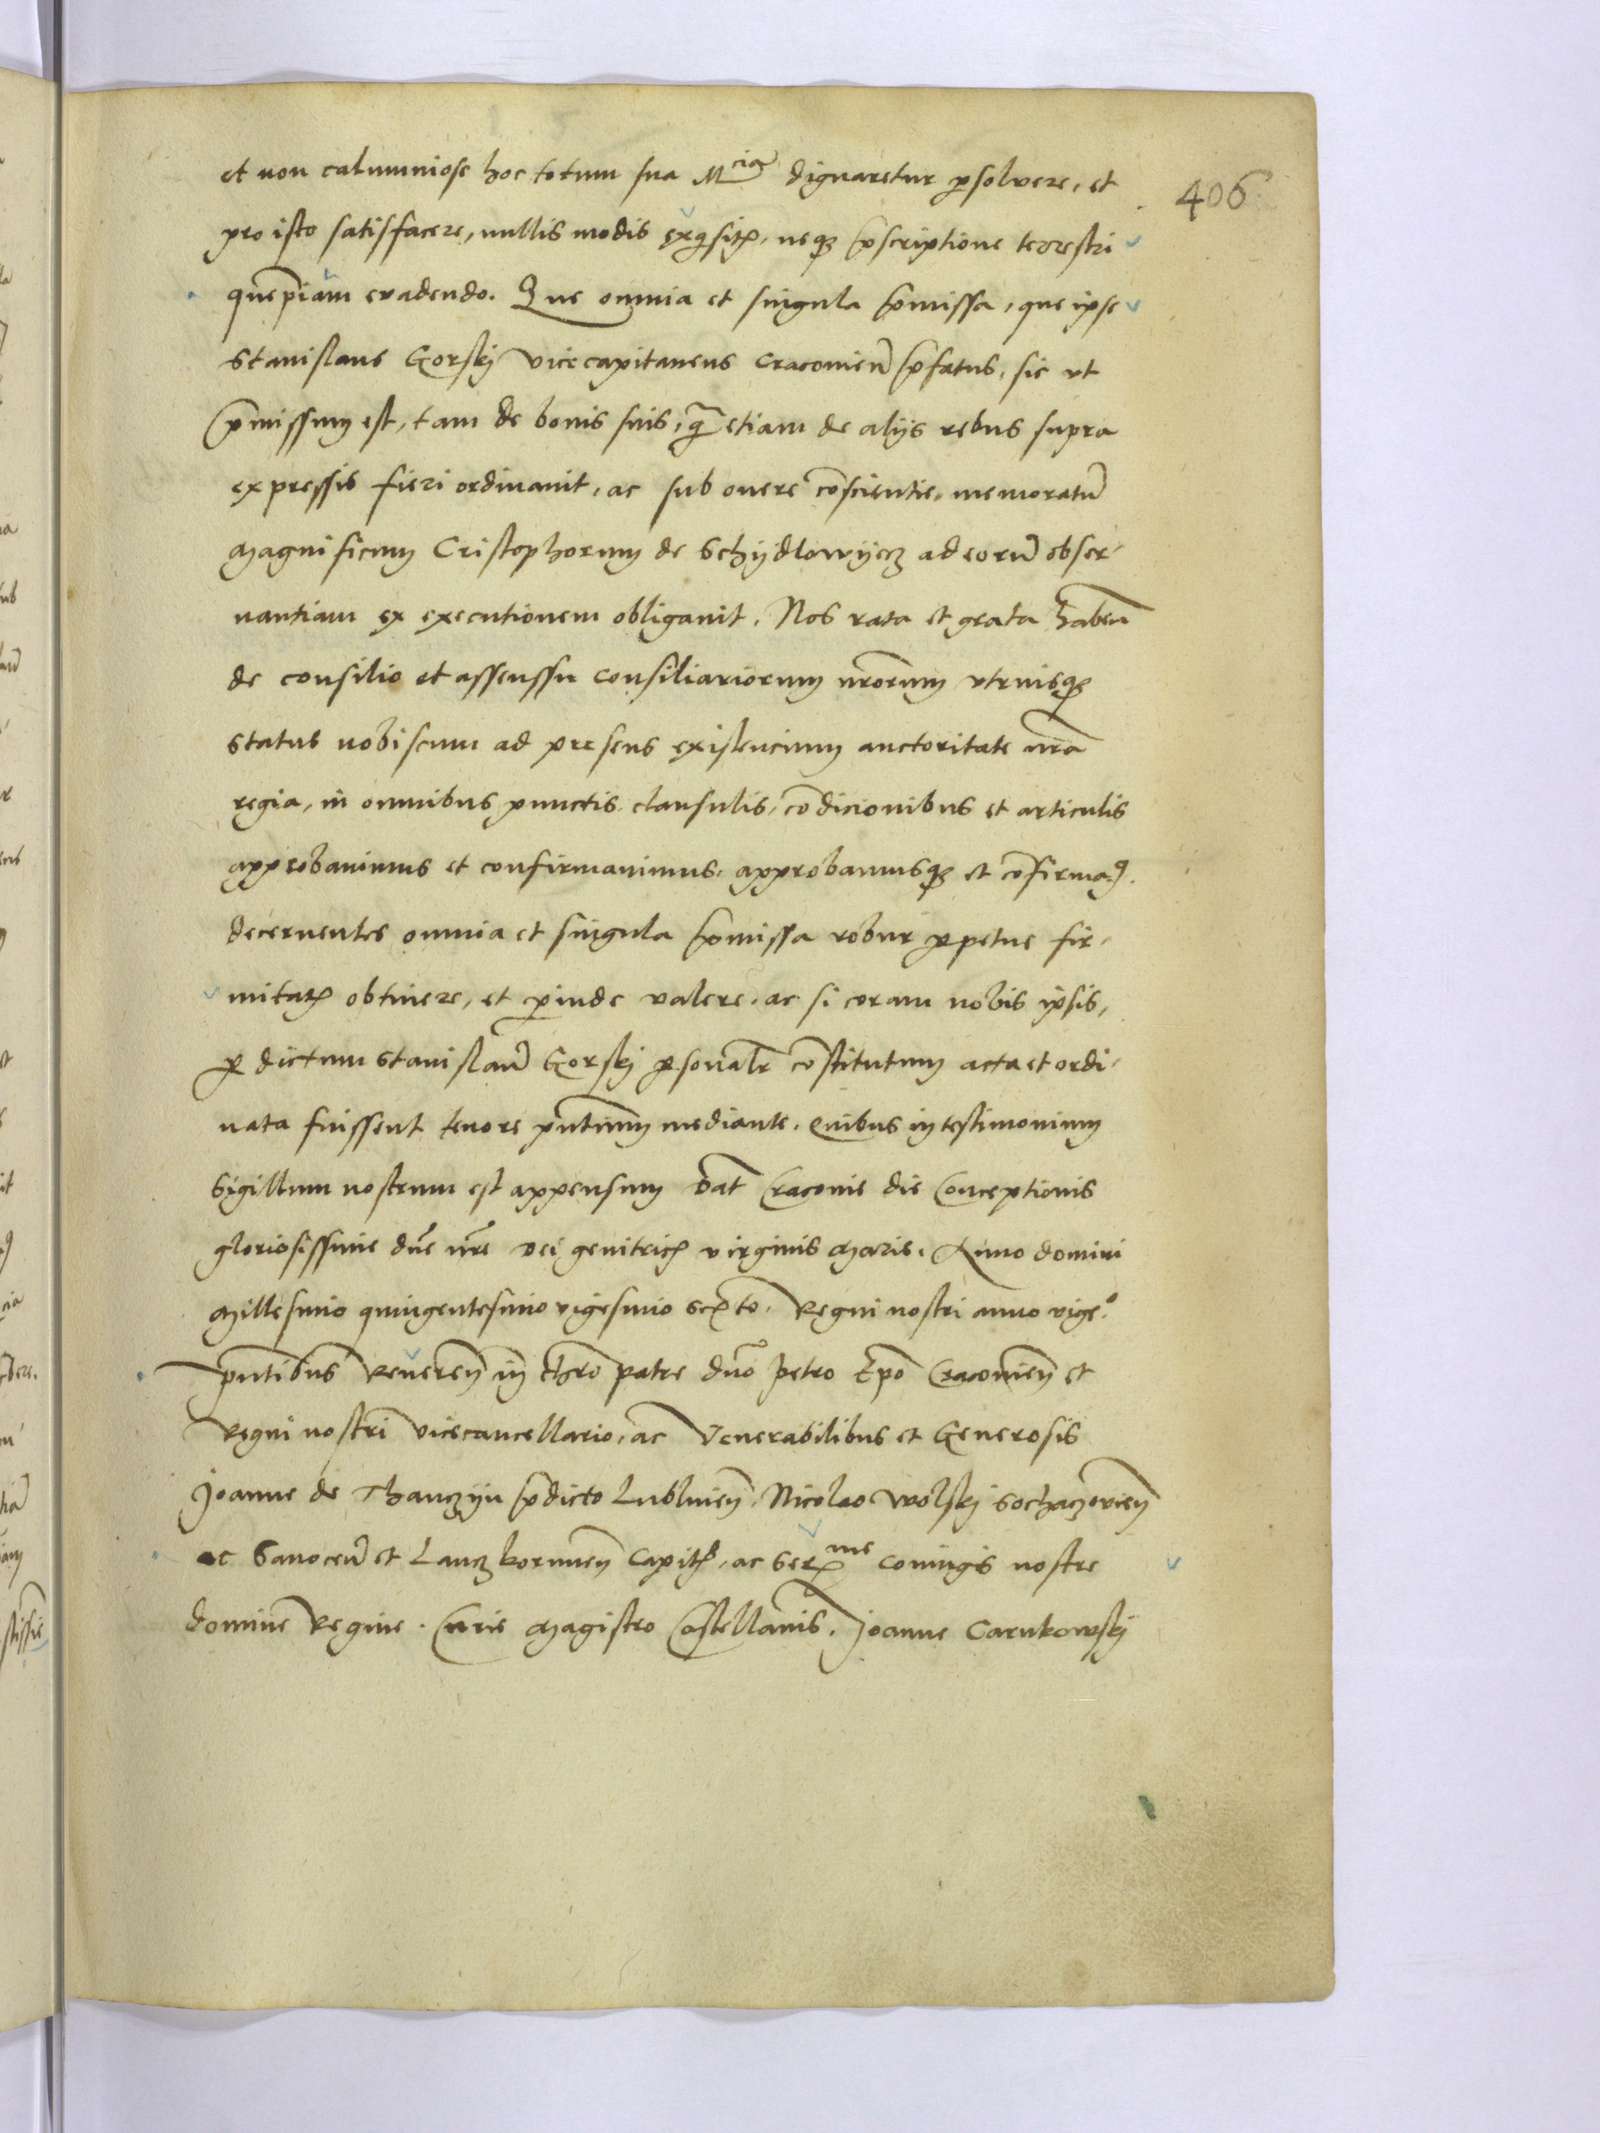 406
et non calumniose hoc totum sua Mcia dignaretur p̱solvere, et
pro isto satisfacere, nullis modis exq̇sitꝭ, neqꝫ p̄scriptione terrestri
quẽpiam evadendo. Que omnia et singula p̄missa, que ipse
Stanislaus Gorskij vicecapitaneus Cracovień p̄fatus, sic ut
p̄missum est, tam de bonis suis, q̃ etiam de alijs rebus supra
expressis fieri ordinavit, ac sub onere cõscientie, memoratũ
Magnificum Cristophorum de Schijdlowijecz ad eorũ obser-
vantiam ex executionem obligavit. Nos rata et grata habeñ
de consilio et assenssu consiliariorum nr̃orum utriusqꝫ
status nobiscum ad presens existencium auctoritate nr̃a
regia, in omnibus punctis clausulis, cõdicionibus et articulis
approbavimus et confirmavimus, approbamusqꝫ et cõfirmaꝯ.
decernentes omnia et singula p̄missa robur ꝑpetue fir-
mitatꝭ obtinere, et ꝑinde valere, ac si coram nobis ipsis,
ꝑ dictum Stanislaũ Gorskij ꝑsonalr̃ cõstitutum acta et ordi-
nata fuissent tenore pñtium mediante. Quibus in testimonium
Sigillum nostrum est appensum Dat̃ Cracovie die Conceptionis
gloriosissime dñe nr̃e dei genitricꝭ virginis Marie. Anno domini
Millesimo quingentesimo vigesimo sexto. Regni nostri anno vigeº.
pñtibus Reverendꝭ in Chr̃o patre dño Petro Ep̃o Cracovień et
Regni nostri Vicecancellario, ac Venerabilibus et Generosis
Joanne de Thanczijn p̄dicto Lublinień, Nicolao Wolskij Sochaczovień
ac Sanoceñ et Lanczkorunień Capitꝭ, ac Serme coniugis nostre
domine Regine. Curie Magistro Castellanis. Joanne Carnkowskij